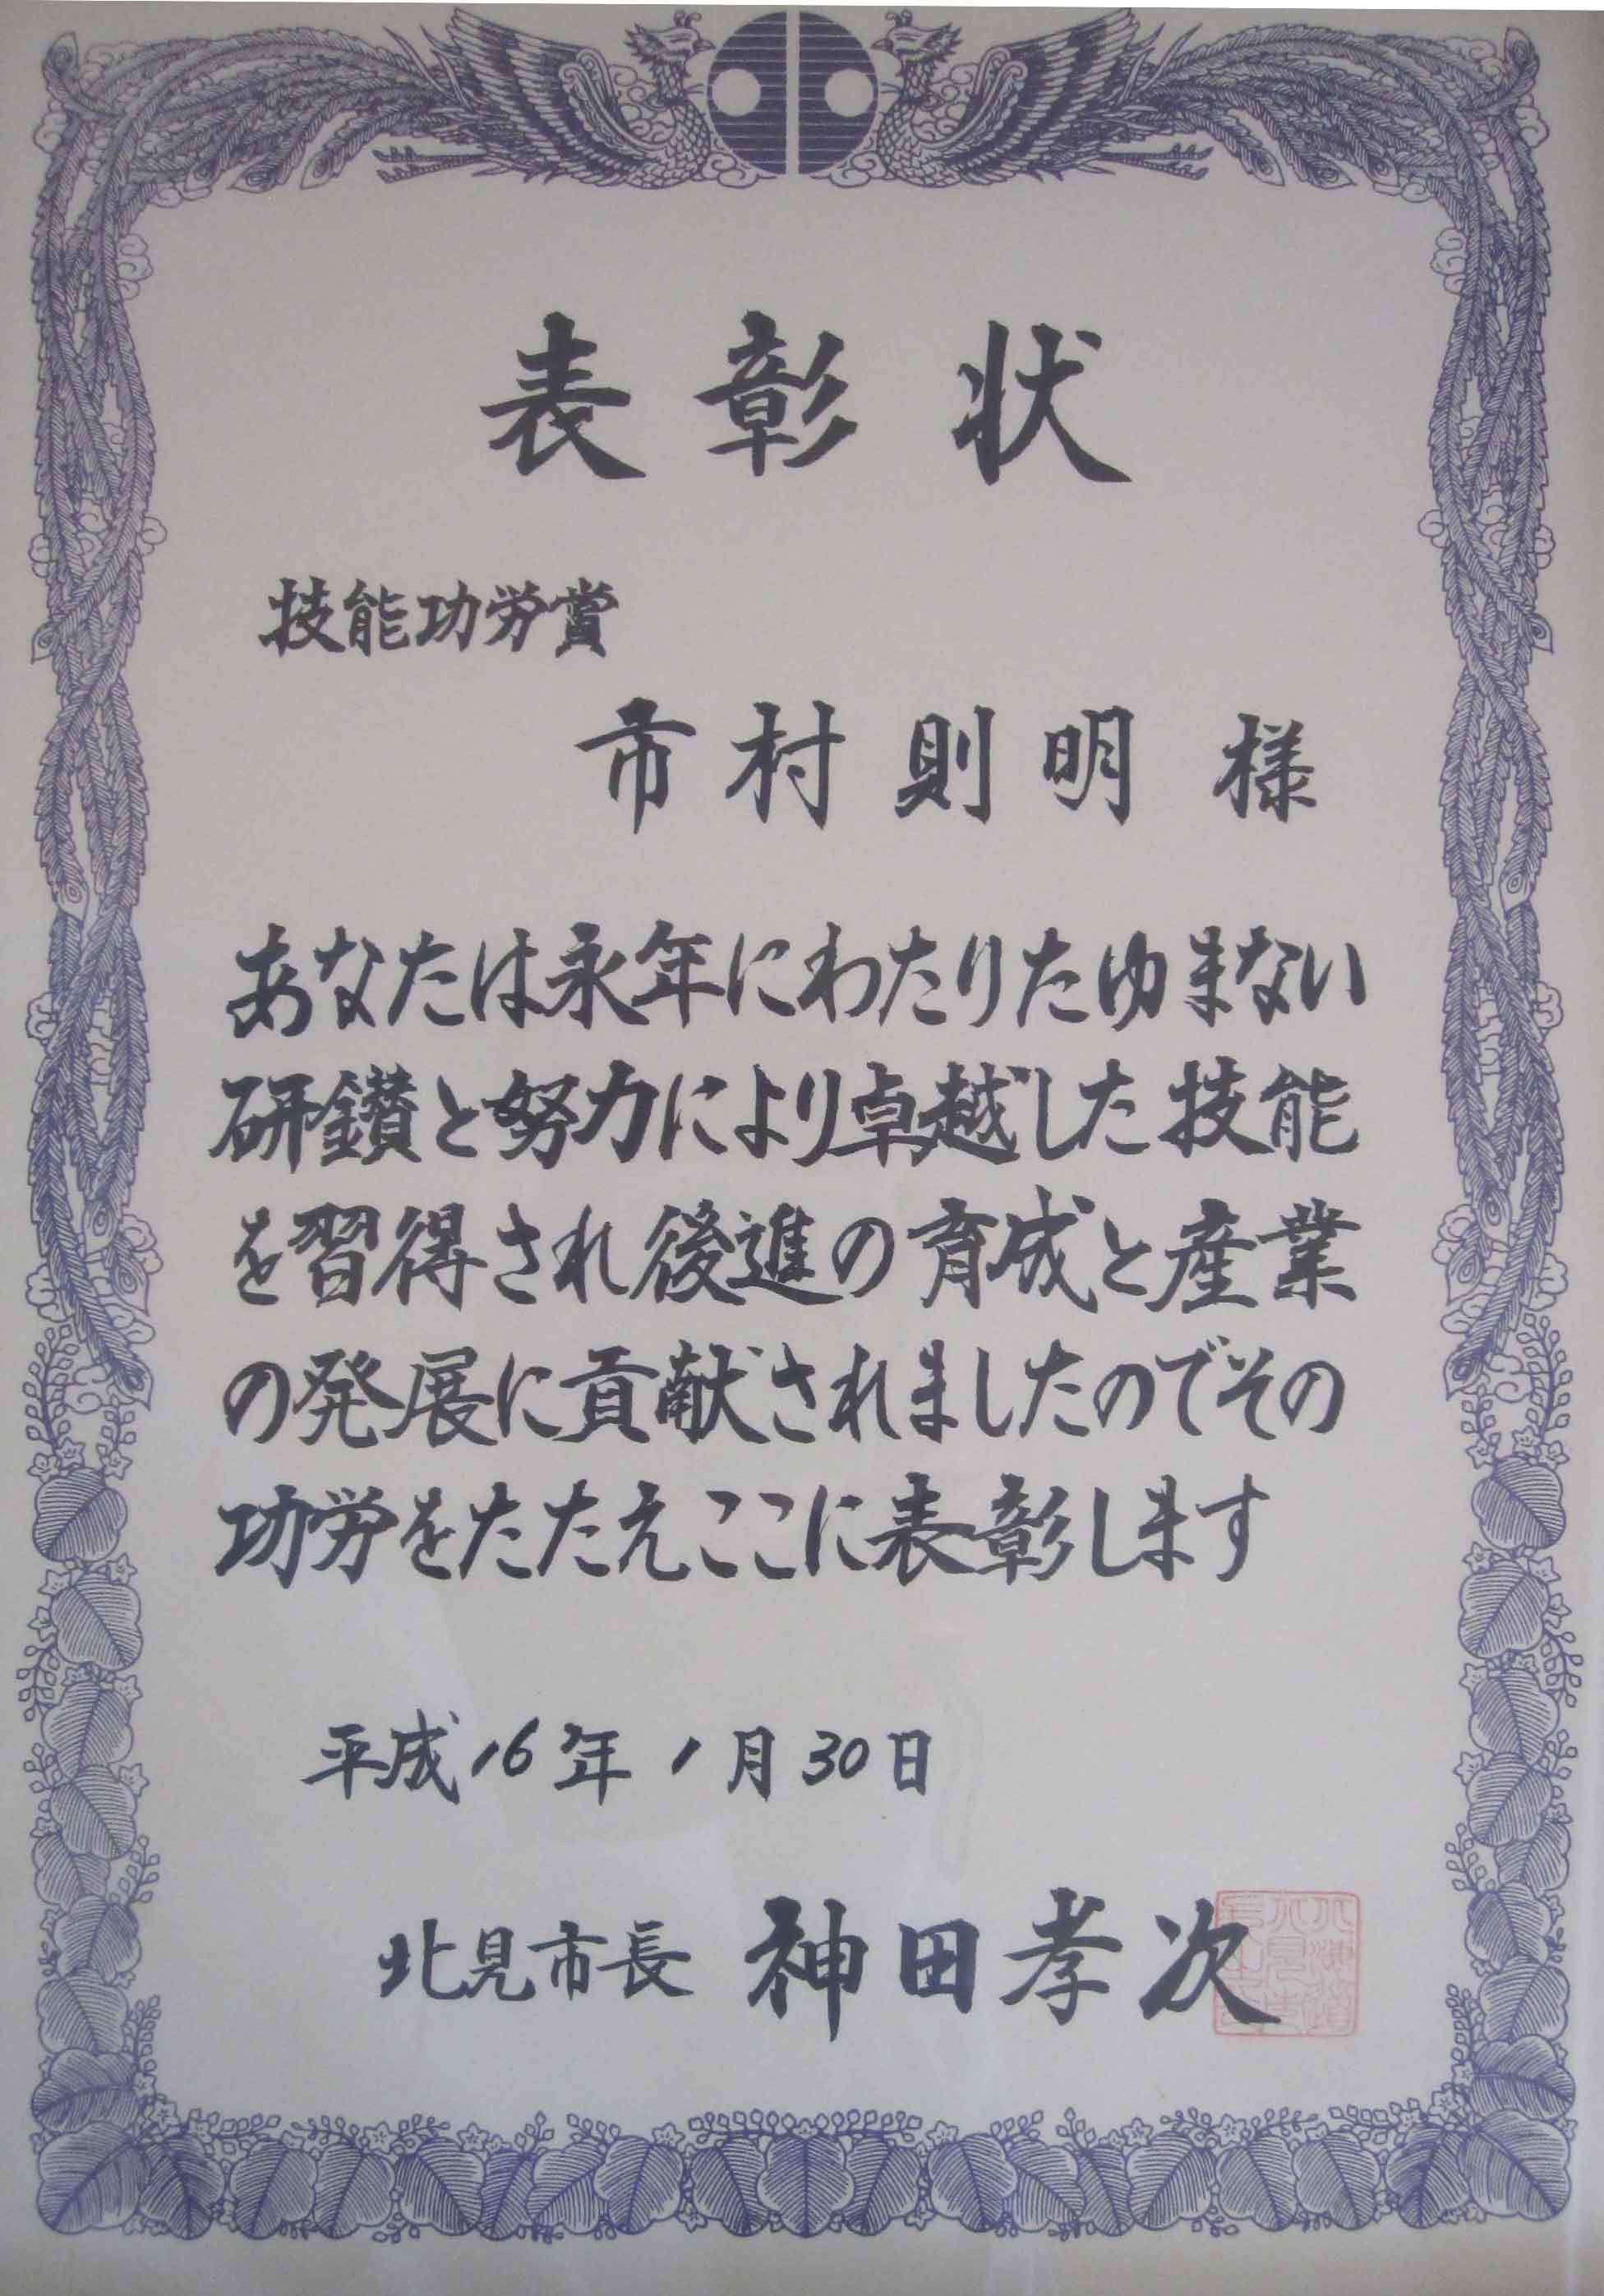 表彰状
技能功労賞
市村則明 様
あなたは永年にわたりたゆまない
研鑚と努力により卓越した技能
を習得され後進の育成と産業
の発展に貢献されましたのでその
功労をたたえここに表彰します
平成16年1月30日
北見市長 神田孝次